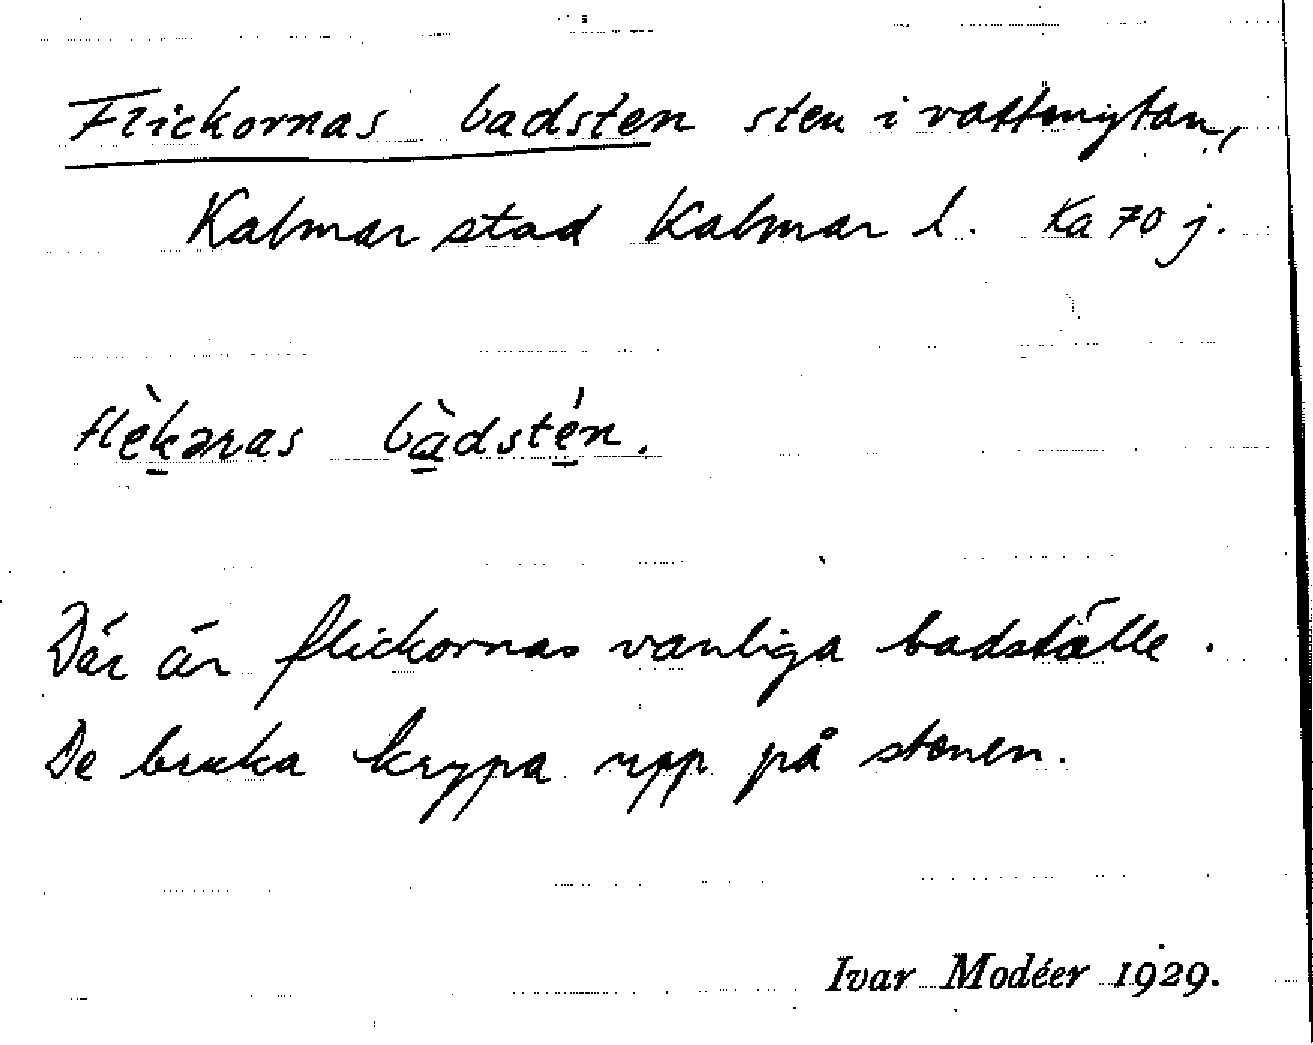 Flickornas badsten sten i vattenytan,
Kalmar stad Kalmar l. Ka 70 j.
flèkəras bàdstén.
Där är flickornas vanliga badställe.
De bruka krypa upp på stenen.
Ivar Modéer 1929.